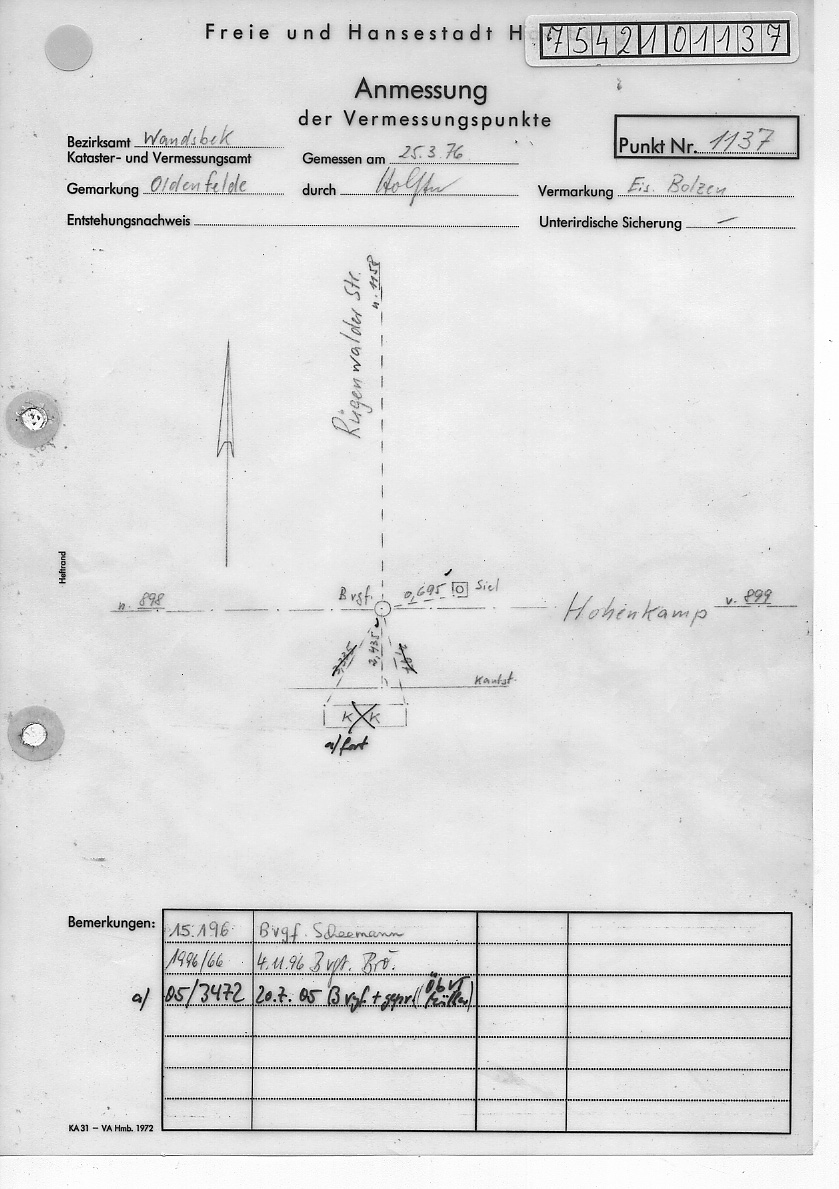 Freie und Hansestadt H
754210 1137
Anmessung
der Vermessungspunkte
Bezirksamt Wandsbek
Kataster- und Vermessungsamt
Gemessen am 25.3.76
Punkt Nr. 1137
Gemarkung Oldenfelde
durch
Vermarkung Eis. Bolzen
Entstehungsnachweis
Unterirdische Sicherung –
Rügenwalder Str.
n. 1158
Heftrand
n. 898
Bvgf.
0,695
Siel
Hohenkamp
v. 899
2,435
Kantst.
K K
a/ fort
Bemerkungen:
15.196 Bvgf. Scheemann
1996/66 4.11.96 Bvgf. Brö.
a/ 05/3472 20.7.05 Bvgf + gepr. (ÖbVI Müller)
KA 31 – VA Hmb. 1972